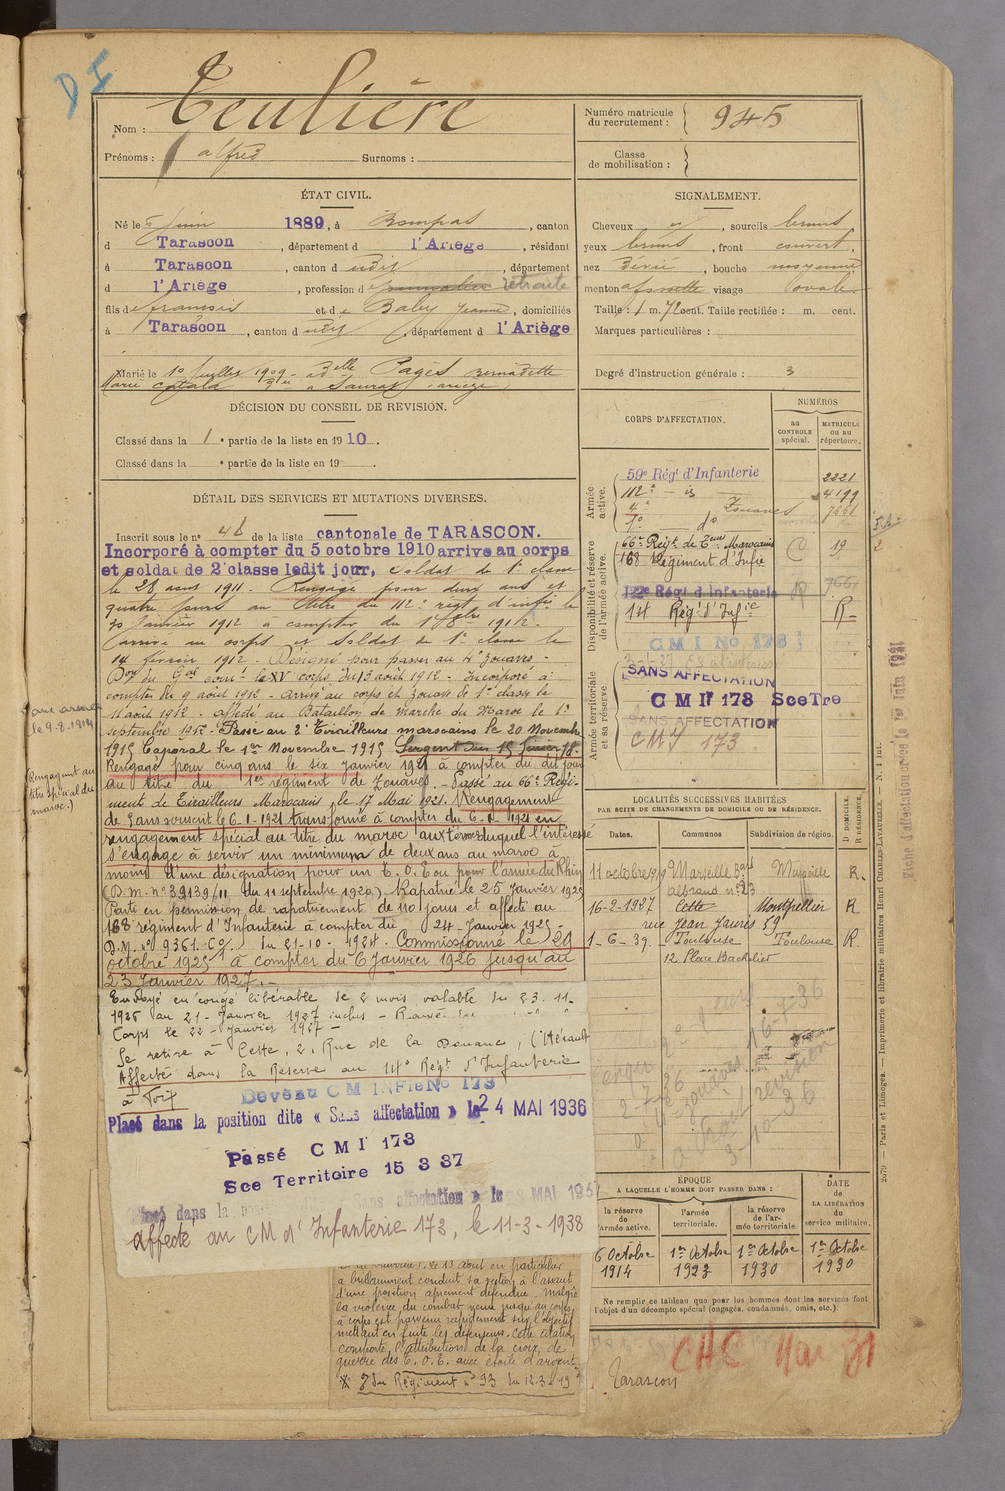 D I
Nom : Teulière
Prénoms : Alfred Surnoms :
Numéro matricule du recrutement : 945
Classe de mobilisation :
ÉTAT CIVIL.
Né le 5 Juin 1889, à Bompas, canton
d Tarascon, département d l'Ariège, résidant
à Tarascon, canton d udit, département
d l'Ariège, profession d journalier retraité
fils de françois et de Baby Jeanne, domiciliés
à Tarascon, canton d udit, département d l'Ariège
Marié le 10 Juillet 1909 à Delle Pagès Bernadette
Marie Catala à Saurat (Ariège)
SIGNALEMENT.
Cheveux , sourcils bruns
yeux bruns, front couvert,
nez dévié, bouche moyenne
menton à fossette visage ovale.
Taille : 1 m. 72 cent. Taille rectifiée : m. cent.
Marques particulières :
Degré d'instruction générale : 3
DÉCISION DU CONSEIL DE REVISION.
Classé dans la 1e partie de la liste en 1910.
Classé dans la e partie de la liste en 19 .
DÉTAIL DES SERVICES ET MUTATIONS DIVERSES.
Inscrit sous le n° 46 de la liste cantonale de TARASCON.
Incorporé à compter du 5 octobre 1910 arrivé au corps
et soldat de 2e classe ledit jour, soldat de 1e classe
le 28 août 1911. Rengagé pour deux ans et
quatre jours au titre du 112e régt d'infie le
30 Janvier 1912 à compter du
arrivé au corps et soldat de 1e classe le
14 février 1912. Désigné pour passer au 4e Zouaves -
Don du Gal comt le XV corps du 3 août 1912 - Incorporé à
compter du 9 août 1912 - Arrivé au corps et zouave de 1e classe le
11 août 1912 - affecté au Bataillon de marche du Maroc le 1e
septembre 1912 - Passé au 2e Tirailleurs marocains le 20 Novembre
1915 Caporal le 1er Novembre 1915 Sergent du 15 février 18.
Rengagé pour cinq ans le six janvier 1921 à compter du dit jour
au titre du 1er régiment de Zouaves. - Passé au 66e Régi-
ment de Tirailleurs Marocains, le 17 Mai 1921. Rengagement
de 5 ans souscrit le 6-1-1921 transformé à compter du 6-1-1921 en
rengagement spécial au titre du maroc aux termes duquel l'intéressé
s'engage à servir un minimum de deux ans au maroc à
moins d'une désignation pour un T.O.E ou pour l'armée du Rhin
(D.M. n° 39139/11 du 11 septembre 1920) Rapatrié le 25 Janvier 1925
Parti en permission de rapatriement de 110 jours et affecté au
168 régiment d'Infanterie à compter du 24 Janvier 1925 -
D.M. n° 9361 C/ du 21-10-1924. Commissionné le 29
octobre 1925 à compter du 6 Janvier 1926 jusqu'au
23 Janvier 1927. -
aux armées
le 9.8.1914
(Rengagement au
titre spécial du
maroc.)
Envoyé en congé libérable de 2 mois valable du 23-11-
1926 au 21-Janvier 1927 inclus - Rayé du
Corps le 22 - Janvier 1927 -
Se retire à Cette, 2, Rue de la Douane, (Hérault
Affecté dans la Réserve au 14e Régt d'Infanterie
à Toip
Devenu C M INFIE No 173
Placé dans la position dite « Sans affectation » le 24 MAI 1936
Passé C M I 173
Sce Territoire 15 3 37
Placé dans la Sans affectation » le MAI 195
affecté au CM d'Infanterie 173, le 11-3-1938
le 13 août en particulier
a brillamment conduit sa section à l'assaut
d'une position aprement défendue malgré
la violence du combat venu jusqu'au corps
à corps est parvenu rapidement sur l'objectif
mettant en fuite les défenseurs. Cette citation
comporte l'attribution de la croix de
guerre des T.O.E. avec étoile d'argent
du Régiment n° 93 du 12-3-19
CORPS D'AFFECTATION.
NUMÉROS
au CONTROLE spécial.
MATRICULE ou au répertoire.
Armée active.
59e Régt d'Infanterie 2221
112e - d° 4199
4e Zouaves 7661
1e d°
Disponibilité et réserve de l'armée active.
66e Régt de Tirs Marocains 19
168 Régiment d'Infie
122e Régt d'Infanterie R 7661
14 Régt d'Infie R-
Armée territoriale et sa réserve.
C M I No 173
SANS AFFECTATION
C M I 173 Sce Tre
SANS AFFECTATION
CMI 173
LOCALITÉS SUCCESSIVES HABITÉES
PAR SUITE DE CHANGEMENTS DE DOMICILE OU DE RÉSIDENCE.
Dates. Communes Subdivision de région. D DOMICILE. R RÉSIDENCE.
11 octobre 1919 Marseille Bard Marseille R.
albrand n° 23
16-2-1927 Cette Montpellier R
rue Jean Jaurès 59
1-6-39. Toulouse Toulouse R.
12, Place Bachelier
16-7-36
Zouaves
3-10-36
ÉPOQUE
A LAQUELLE L'HOMME DOIT PASSER DANS :
la réserve de l'armée active.
l'armée territoriale.
la réserve de l'armée territoriale.
DATE de la LIBÉRATION du service militaire.
6 Octobre 1914
1er Octobre 1923
1er Octobre 1930
1er Octobre 1930
Ne remplir ce tableau que pour les hommes dont les services font
l'objet d'un décompte spécial (engagés, condamnés, omis, etc.)
Tarascon
2079 — Paris et Limoges. — Imprimerie et librairie militaires Henri CHARLES-LAVAUZELLE. — N. 1 int.
Fiche d'affectation créée le 1er Juin 1931